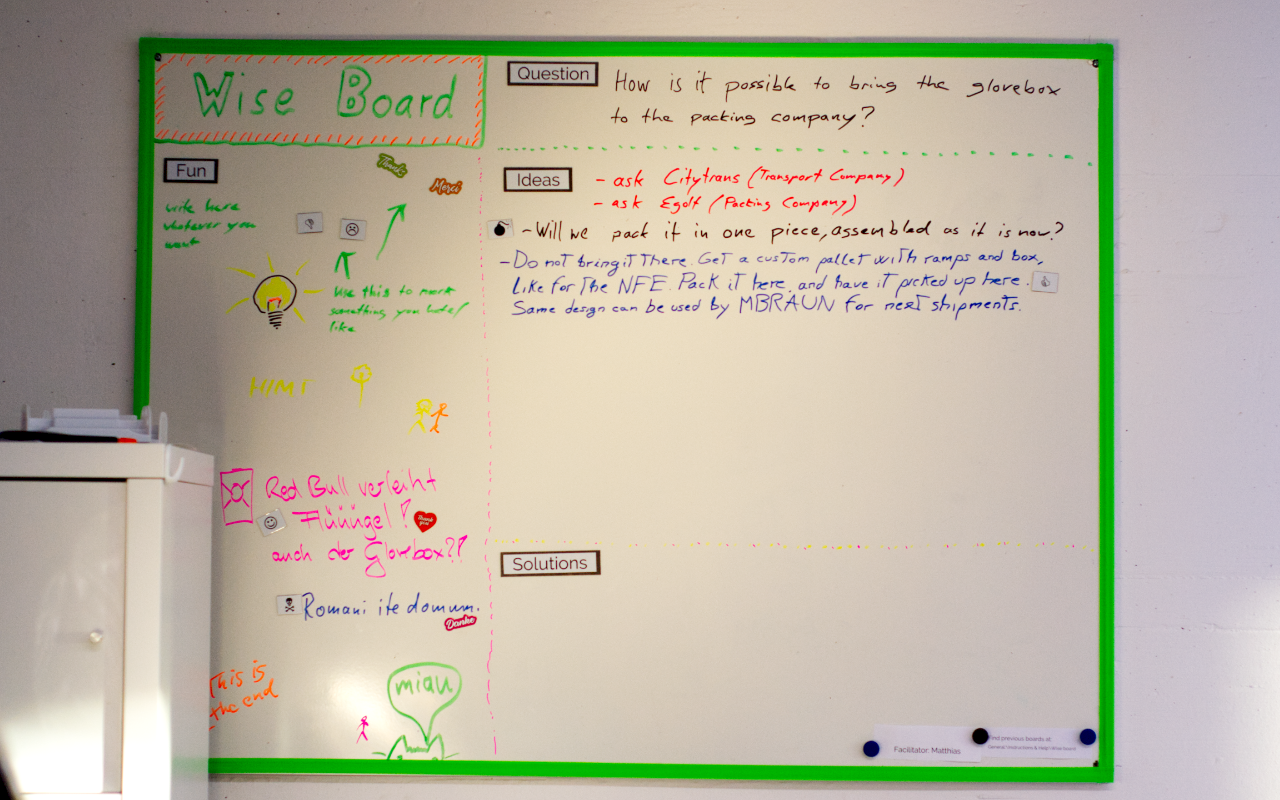 Wise Board
Question
How is it possible to bring the glovebox
to the packing company?
Fun
Thanks
Merci
write here
whatever you
want
use this to mark
something you hate/
like
Red Bull verleiht
Flüüügel!
Thank you
auch der Glovebox?!
Romani ite domum.
Danke
This is
the end
miau
Ideas
- ask Citytrans (Transport Company)
- ask Egolf (Packing Company)
- Will we pack it in one piece, assembled as it is now?
- Do not bring it there. Get a custom pallet with ramps and box,
like for the NFE. Pack it here, and have it picked up here.
Same design can be used by MBRAUN for next shipments.
Solutions
Facilitator: Matthias
Find previous boards at: